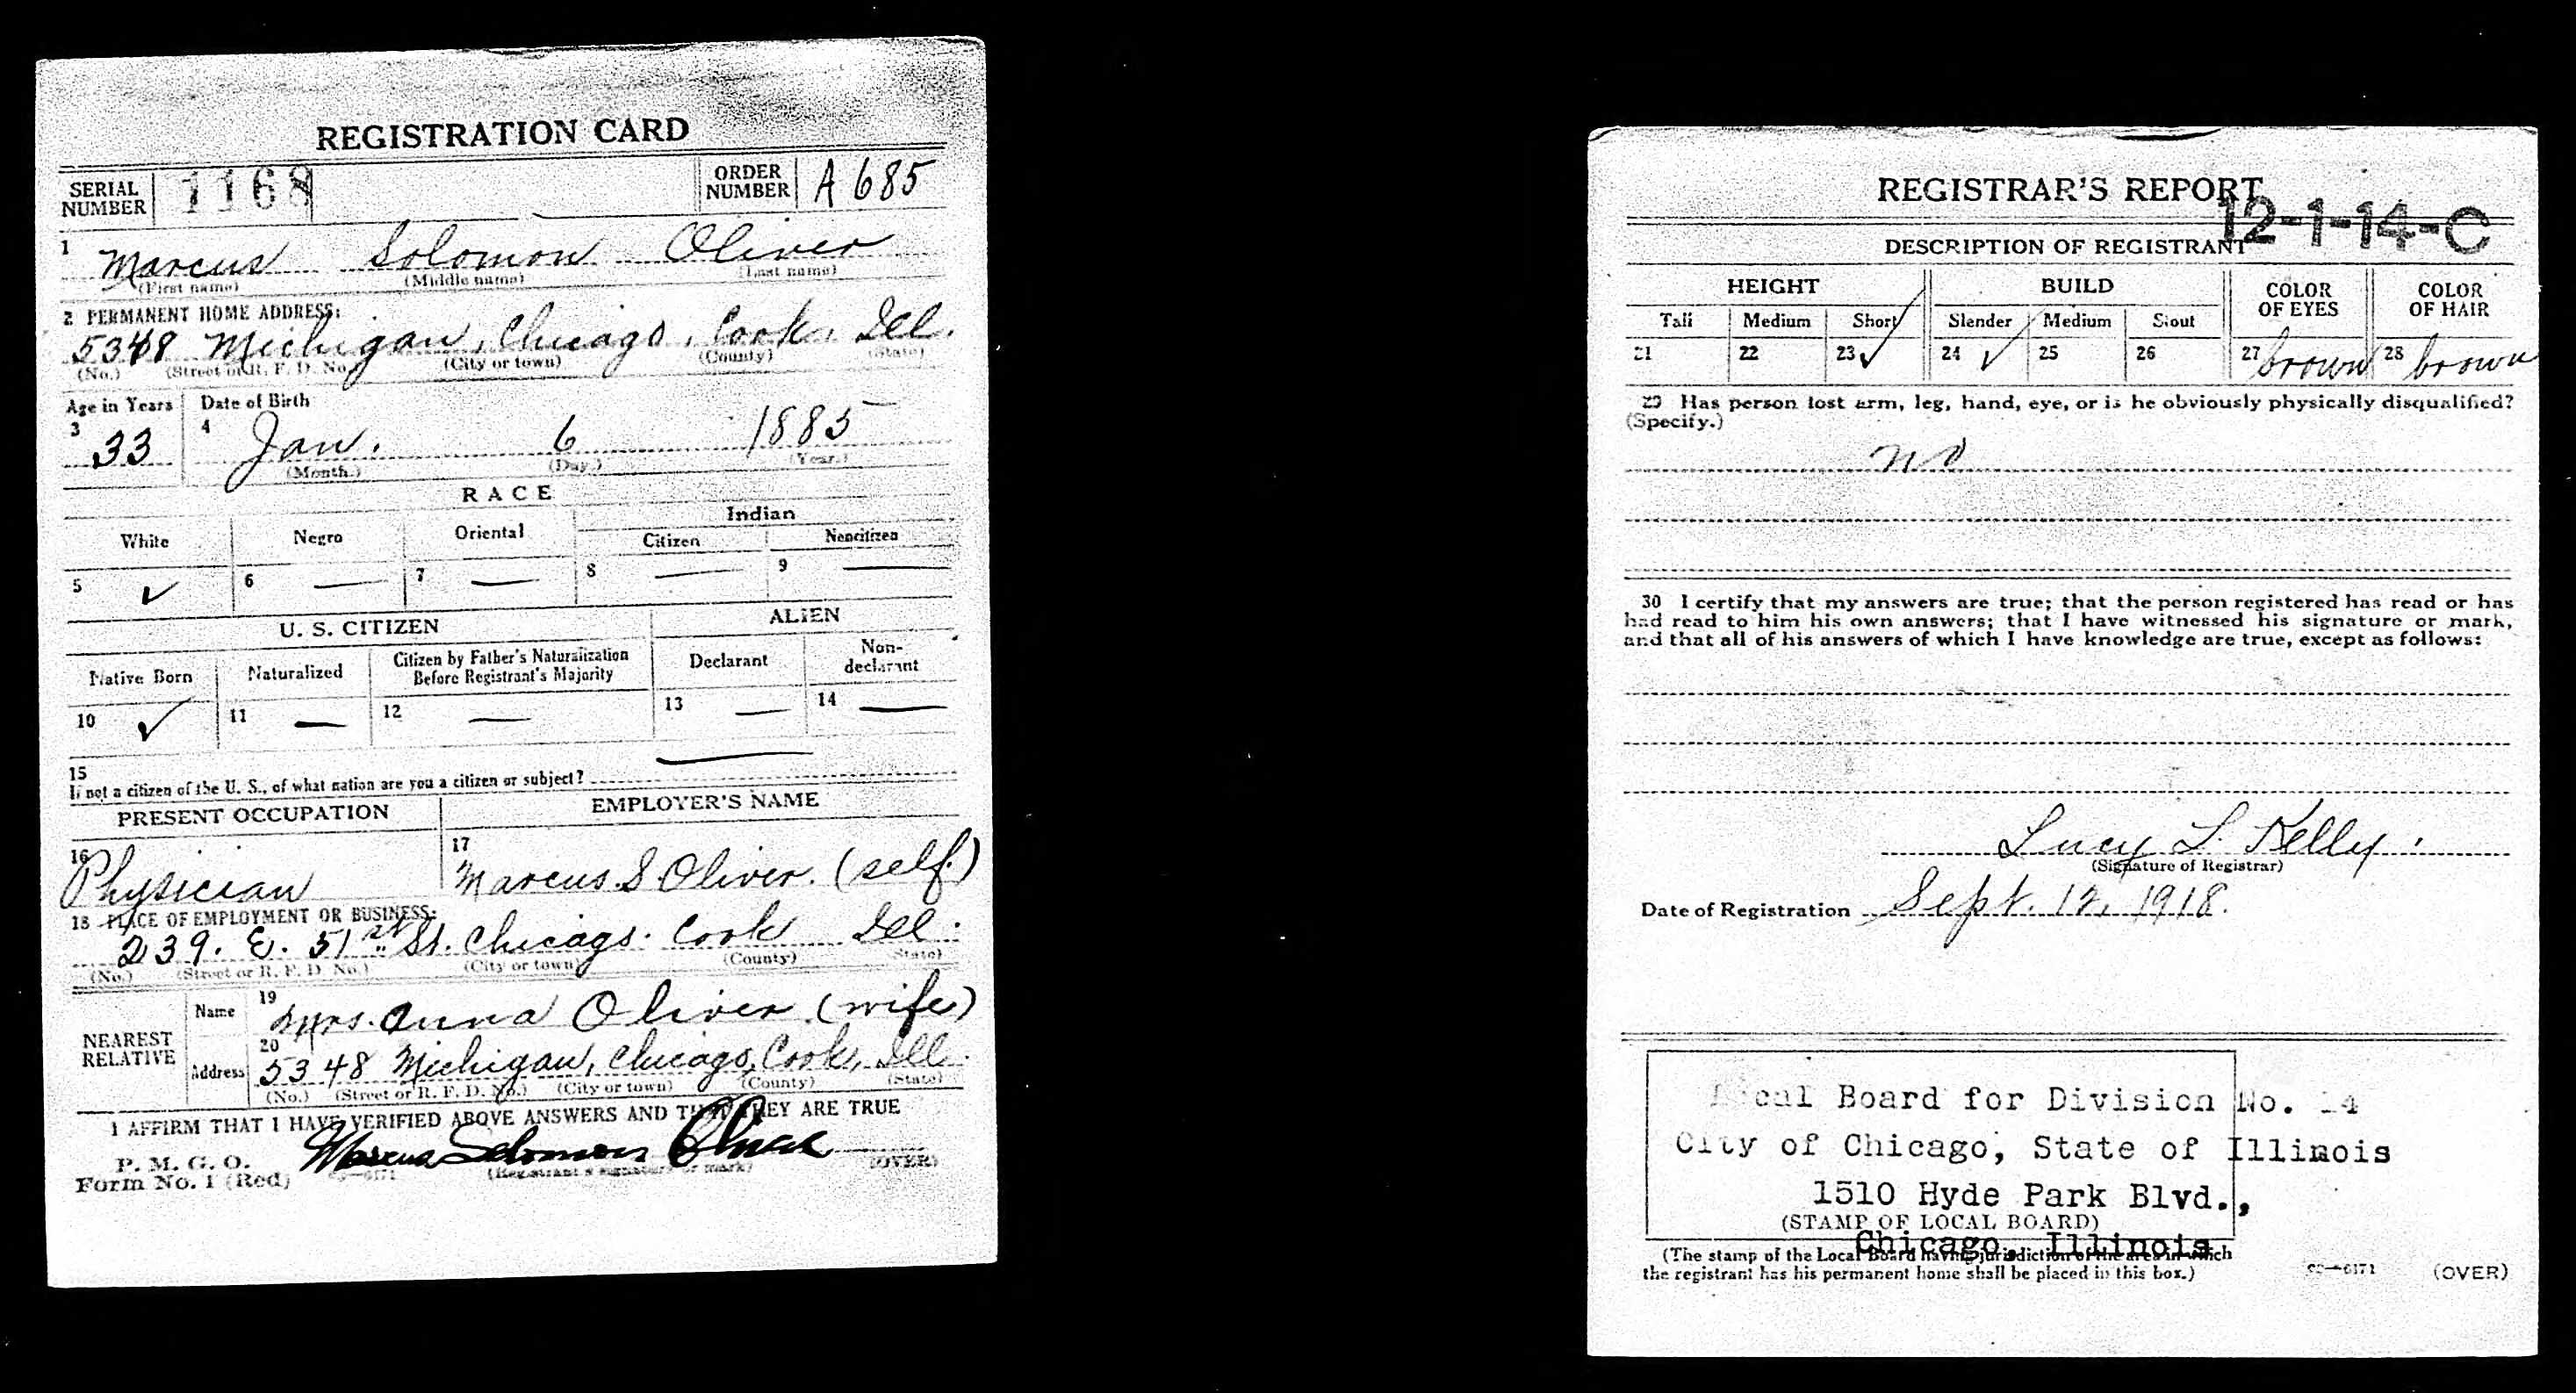 REGISTRATION CARD
SERIAL NUMBER 1168 ORDER NUMBER A 685
1 Marcus Solomon Oliver
(First name) (Middle name) (Last name)
2 PERMANENT HOME ADDRESS:
5348 Michigan, Chicago, Cook, Ill.
(No.) (Street or R. F. D. No.) (City or town) (County) (State)
Age in Years Date of Birth
3 33 4 Jan. 6 1885
(Month.) (Day.) (Year.)
RACE
White Negro Oriental Indian
Citizen Noncitizen
5 ✓ 6 — 7 — 8 — 9 —
U. S. CITIZEN ALIEN
Native Born Naturalized Citizen by Father's Naturalization Before Registrant's Majority Declarant Non-declarant
10 ✓ 11 — 12 — 13 — 14 —
15
If not a citizen of the U. S., of what nation are you a citizen or subject? —
PRESENT OCCUPATION EMPLOYER'S NAME
16 Physician 17 Marcus. S. Oliver. (self.)
18 PLACE OF EMPLOYMENT OR BUSINESS:
239. E. 51st St. Chicago. Cook Ill.
(No.) (Street or R. F. D. No.) (City or town) (County) (State)
NEAREST RELATIVE
Name 19 Mrs. Anna Oliver (wife)
Address 20 5348 Michigan, Chicago, Cook, Ill.
(No.) (Street or R. F. D. No.) (City or town) (County) (State)
I AFFIRM THAT I HAVE VERIFIED ABOVE ANSWERS AND THAT THEY ARE TRUE
P. M. G. O.
Form No. 1 (Red) Marcus Solomon Oliver
(Registrant's signature or mark) (OVER)
REGISTRAR'S REPORT
12-1-14-C
DESCRIPTION OF REGISTRANT
HEIGHT BUILD COLOR OF EYES COLOR OF HAIR
Tall Medium Short Slender Medium Stout
21 22 23 ✓ 24 ✓ 25 26 27 brown 28 brown
29 Has person lost arm, leg, hand, eye, or is he obviously physically disqualified?
(Specify.)
no
30 I certify that my answers are true; that the person registered has read or has
had read to him his own answers; that I have witnessed his signature or mark,
and that all of his answers of which I have knowledge are true, except as follows:
Lucy L. Kelly.
(Signature of Registrar)
Date of Registration Sept. 12, 1918.
Local Board for Division No. 14
City of Chicago, State of Illinois
1510 Hyde Park Blvd.,
(STAMP OF LOCAL BOARD)
Chicago, Illinois
(The stamp of the Local Board having jurisdiction of the area in which
the registrant has his permanent home shall be placed in this box.)
(OVER)